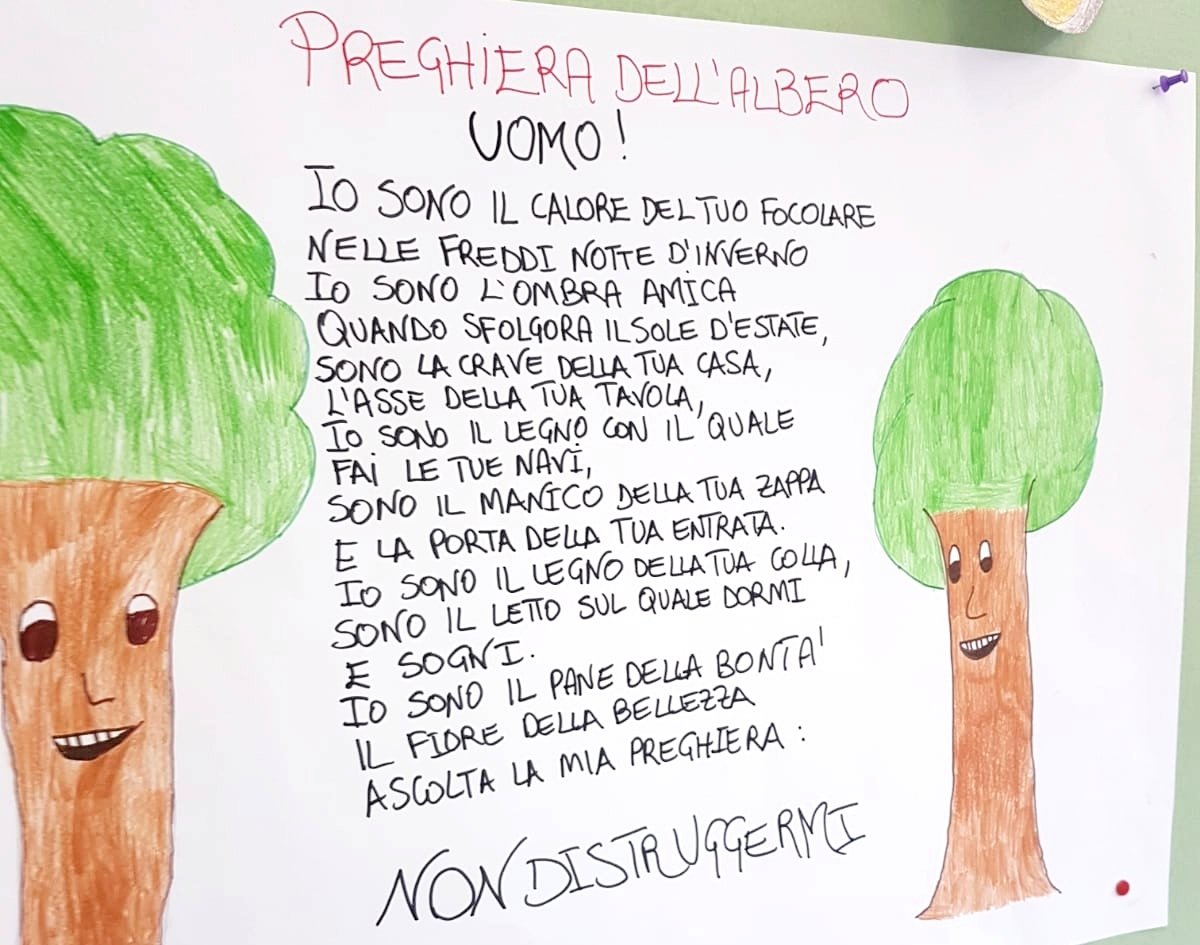 PREGHIERA DELL'ALBERO
UOMO!
IO SONO IL CALORE DEL TUO FOCOLARE
NELLE FREDDI NOTTE D'INVERNO
IO SONO L'OMBRA AMICA
QUANDO SFOLGORA IL SOLE D'ESTATE,
SONO LA CRAVE DELLA TUA CASA,
L'ASSE DELLA TUA TAVOLA,
IO SONO IL LEGNO CON IL QUALE
FAI LE TUE NAVI,
SONO IL MANICO DELLA TUA ZAPPA
E LA PORTA DELLA TUA ENTRATA.
IO SONO IL LEGNO DELLA TUA COLLA,
SONO IL LETTO SUL QUALE DORMI
E SOGNI.
IO SONO IL PANE DELLA BONTA'
IL FIORE DELLA BELLEZZA
ASCOLTA LA MIA PREGHIERA:
NON DISTRUGGERMI